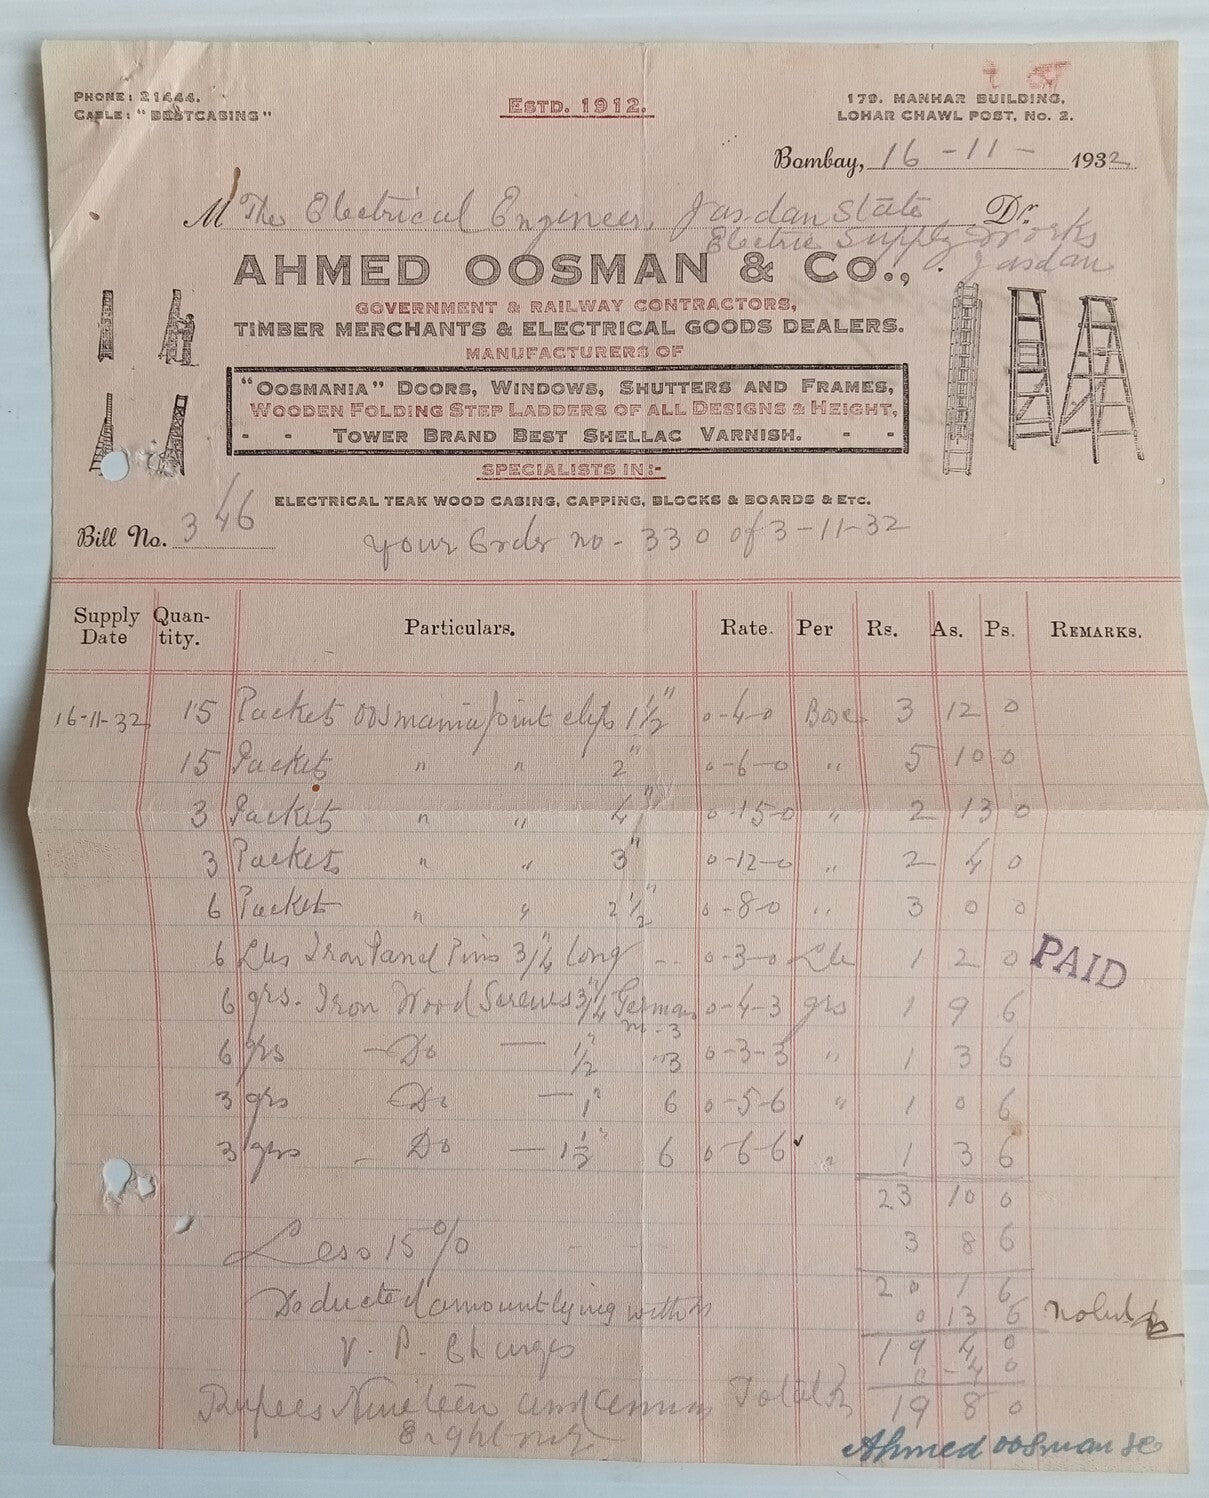 PHONE: 21444.
CABLE: "BESTCASING"
ESTD. 1912.
179. MANHAR BUILDING,
LOHAR CHAWL POST, No. 2.
Bombay, 16-11-1932
M The Electrical Engineer, Jasdan State Dr.
Electric Supply Works
Jasdan
AHMED OOSMAN & Co.,
GOVERNMENT & RAILWAY CONTRACTORS,
TIMBER MERCHANTS & ELECTRICAL GOODS DEALERS.
MANUFACTURERS OF
"OOSMANIA" DOORS, WINDOWS, SHUTTERS AND FRAMES,
WOODEN FOLDING STEP LADDERS OF ALL DESIGNS & HEIGHT,
- - TOWER BRAND BEST SHELLAC VARNISH. - -
SPECIALISTS IN:-
ELECTRICAL TEAK WOOD CASING, CAPPING, BLOCKS & BOARDS & ETC.
Bill No. 346
your Order no - 330 of 3-11-32
Supply Date Quantity. Particulars. Rate. Per Rs. As. Ps. REMARKS.
16-11-32 15 Packet oosmania joint clips 1½" 0-4-0 Box 3 12 0
15 Packets " " 2" 0-6-0 " 5 10 0
3 Packets " " 4" 0-15-0 " 2 13 0
3 Packets " " 3" 0-12-0 " 2 4 0
6 Packet " " 2½" 0-8-0 " 3 0 0
6 Lbs Iron Panel Pins 3/4" long -- 0-3-0 Lb 1 2 0
PAID
6 grs. Iron Wood Screws 3/4" German 0-4-3 grs 1 9 6
m-3
6 grs - Do - 1/2" "3 0-3-3 " 1 3 6
3 grs - Do - 1" 6 0-5-6 " 1 0 6
3 grs - Do - 1½" 6 0-6-6 " 1 3 6
23 10 0
Less 15% - - 3 8 6
20 1 6
Deducted amount lying with 0 13 6
V. P. Charges 19 4 0
0-4 0
Rupees Nineteen and annas Total Rs 19 8 0
Eight only
Ahmed oosman &Co